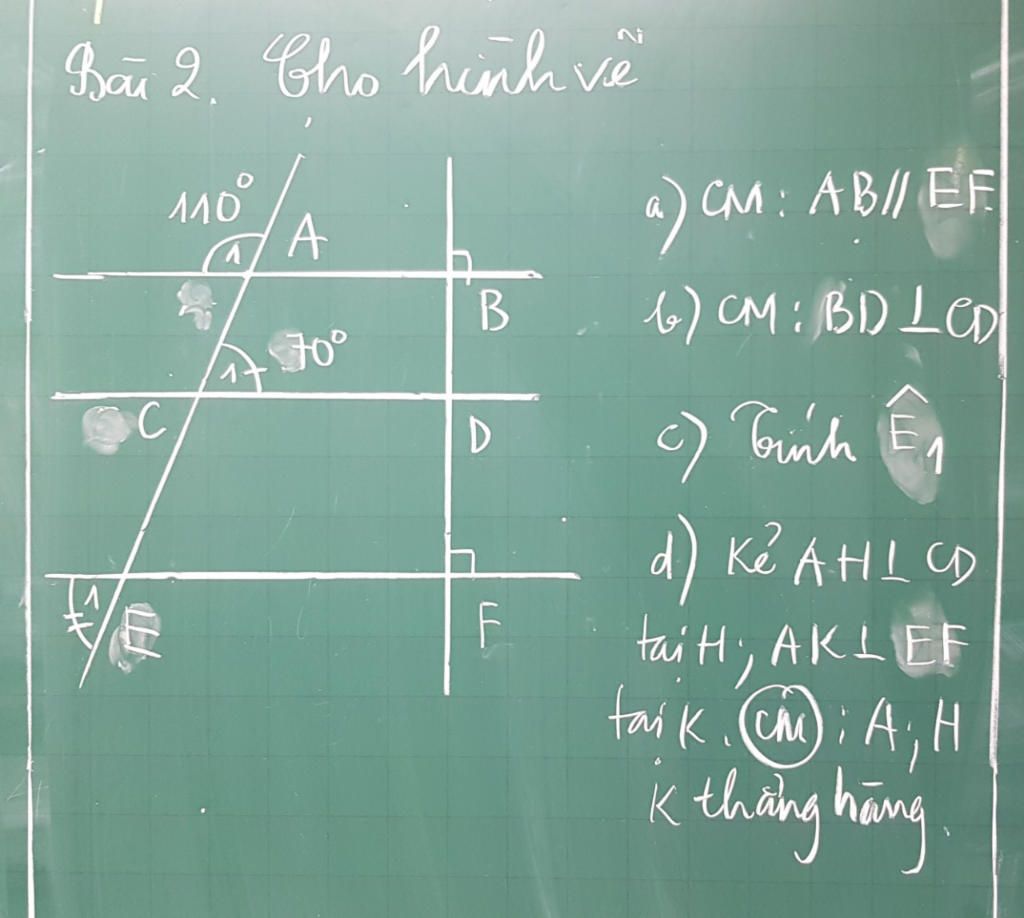 Bài 2. Cho hình vẽ
110°
1
A
B
70°
1
C
D
1
E
F
a) CM: AB // EF
b) CM: BD ⊥ CD
c) Tính Ê₁
d) Kẻ AH ⊥ CD
tại H; AK ⊥ EF
tại K. CM: A; H
K thẳng hàng.